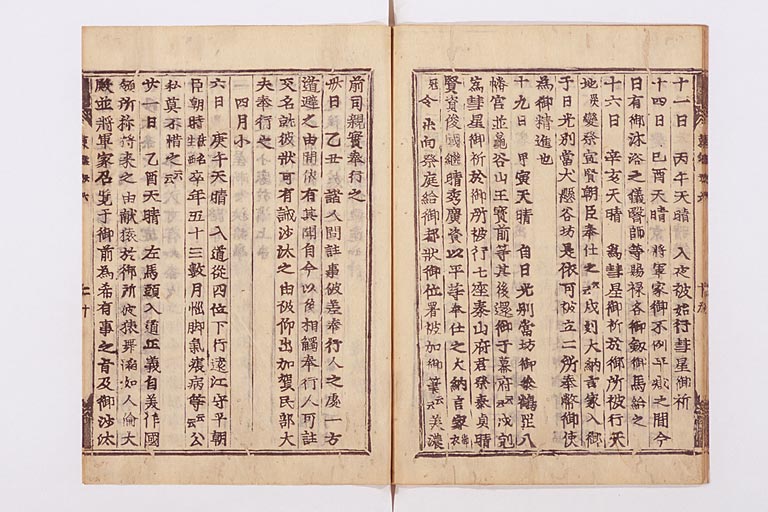 十一日　丙午天晴　入夜被始行彗星御祈
十四日　己酉天晴　將軍家御不例平愈之間今
日有御沐浴之儀醫師等賜禄各御劔御馬給之
十六日　辛亥天晴　為彗星御祈於御所被行天
地災變祭宣賢朝臣奉仕之云云戌刻大納言家入御
于日光別當犬懸谷坊是依可被立二所奉幣御使
為御精進也
十九日　甲寅天晴　自日光別當坊御參鶴岳八
幡宮並龜谷山王寶前等其後還御于幕府云云戌刻
為彗星御祈於御所被行七座泰山府君祭泰貞晴
賢資俊國継晴秀廣資以平等奉仕之大納言家御衣
冠令出向祭庭給御都狀御位署被加御筆云云美濃
前司親實奉行之
卅日　乙丑　於諸人問註事被差奉行人之處一方
遁避之由間依有其聞自今以後相觸奉行人可註
交名就彼狀可有誡沙汰之由被仰出加賀民部大
夫奉行之
一四月小
六日　庚午天晴　入道從四位下行遠江守平朝
臣朝時法名卒年五十三數月惱脚氣瘧病等云云公
私莫不惜之云云
廿一日　乙酉天晴　左馬頭入道正義自美作國
領所称將來之由献猿於御所彼猿舞蹈如人倫大
殿並將軍家召覽于御前為希有事之旨及御沙汰